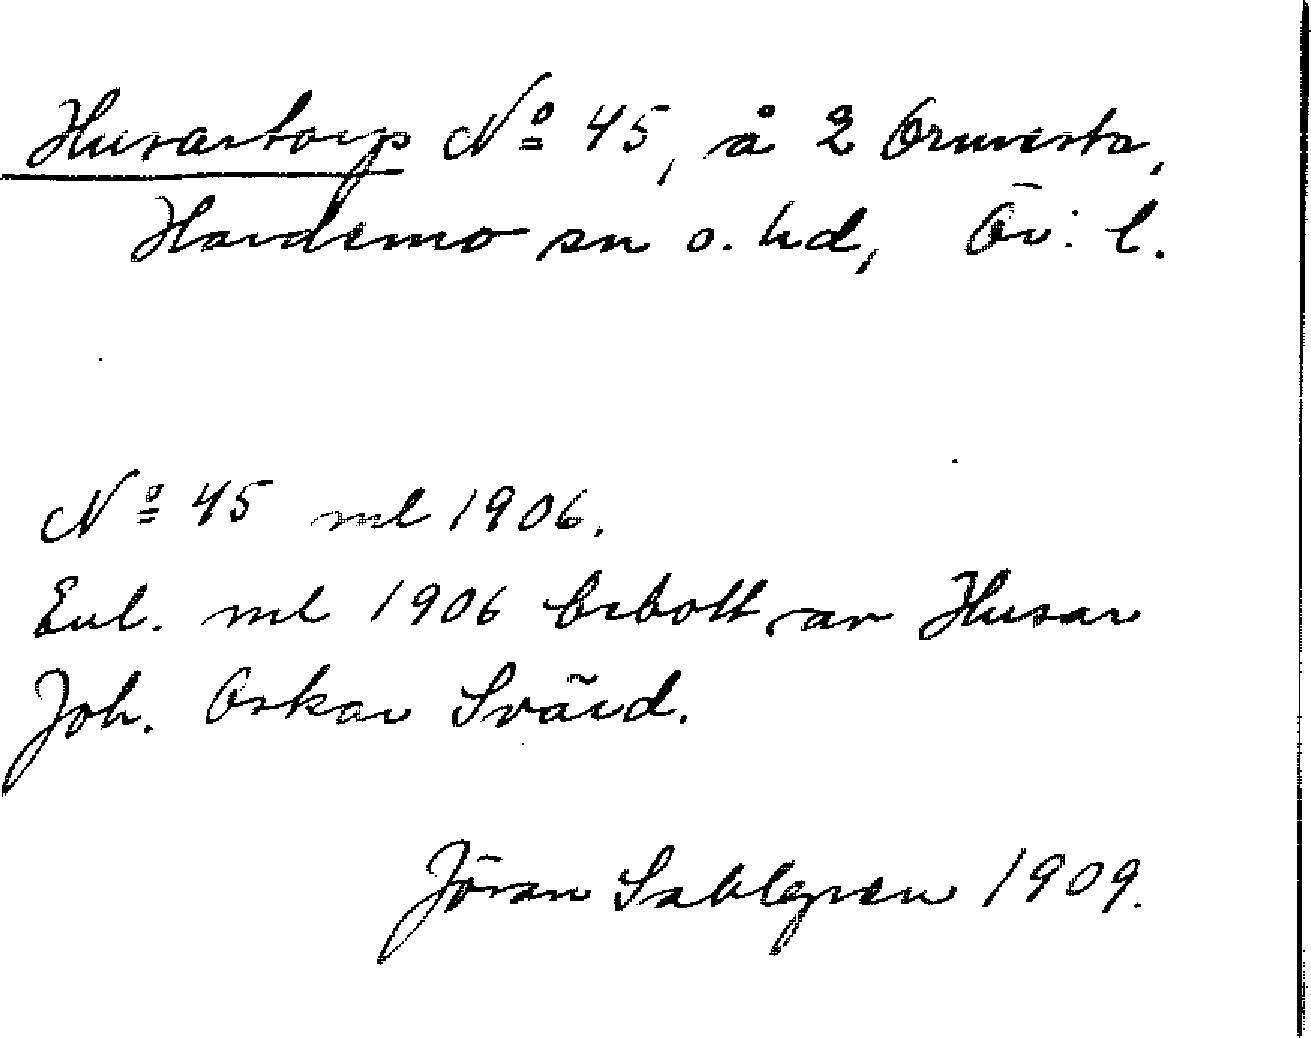 Husartorp Nº 45, å 2 Ormesta,
Hardemo sn o. hd, Ör. l.
Nº 45 ml 1906.
Enl. ml 1906 bebott av Husar
Joh. Oskar Svärd.
Jöran Sahlgren 1909.